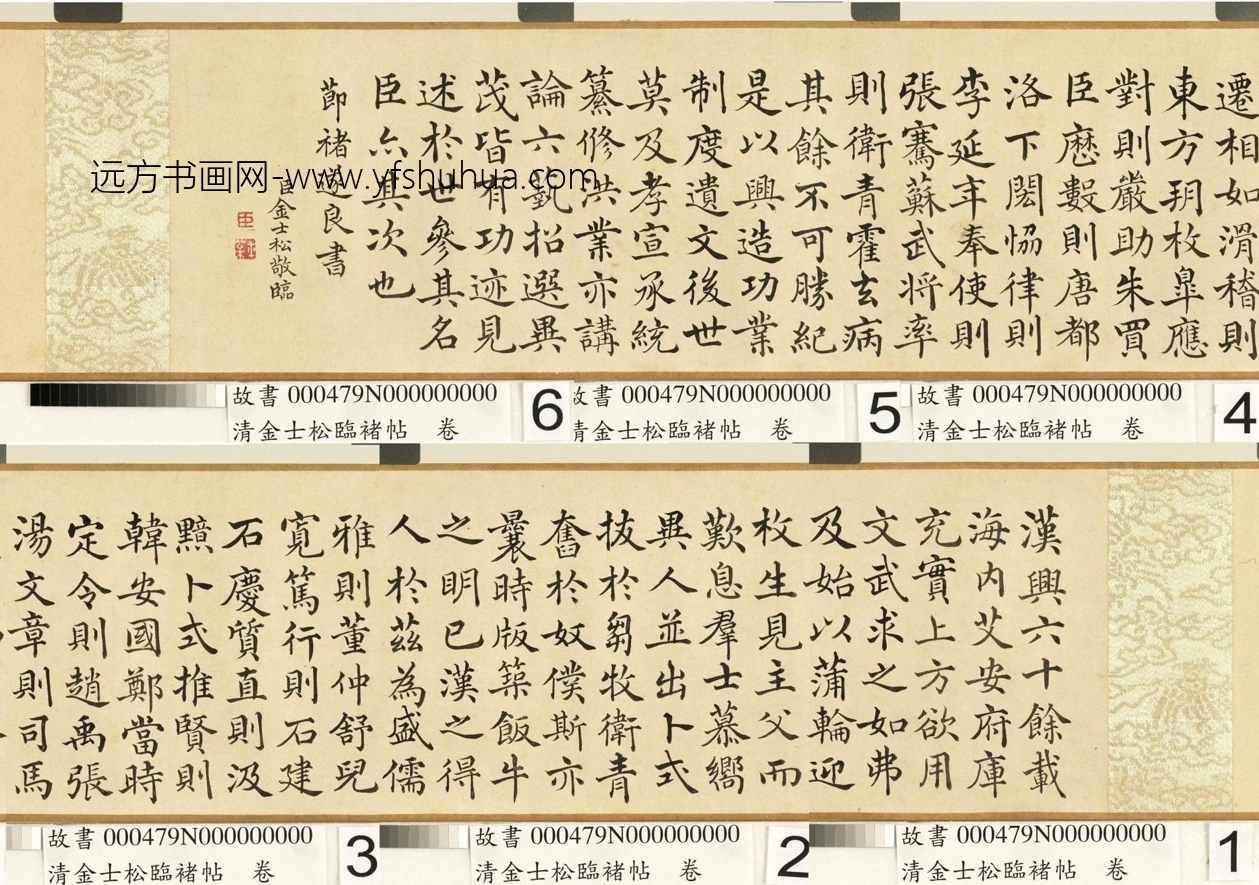 漢興六十餘載
海内艾安府庫
充實上方欲用
文武求之如弗
及始以蒲輪迎
枚生見主父而
歎息羣士慕嚮
異人並出卜式
拔於芻牧衛青
奮於奴僕斯亦
曩時版築飯牛
之明已漢之得
人於茲為盛儒
雅則董仲舒兒
寬篤行則石建
石慶質直則汲
黯卜式推賢則
韓安國鄭當時
定令則趙禹張
湯文章則司馬
遷相如滑稽則
東方朔枚皋應
對則嚴助朱買
臣厯數則唐都
洛下閎恊律則
李延年奉使則
張騫蘇武將率
則衛青霍去病
其餘不可勝紀
是以興造功業
制度遺文後世
莫及孝宣承統
纂修洪業亦講
論六藝招選異
茂皆有功迹見
述於世參其名
臣亦其次也
節褚遂良書
臣金士松敬臨
臣
远方书画网-www.yfshuhua.com
故書 000479N000000000
清金士松臨褚帖 卷
6
故書 000479N000000000
清金士松臨褚帖 卷
5
故書 000479N000000000
清金士松臨褚帖 卷
4
故書 000479N000000000
清金士松臨褚帖 卷
3
故書 000479N000000000
清金士松臨褚帖 卷
2
故書 000479N000000000
清金士松臨褚帖 卷
1